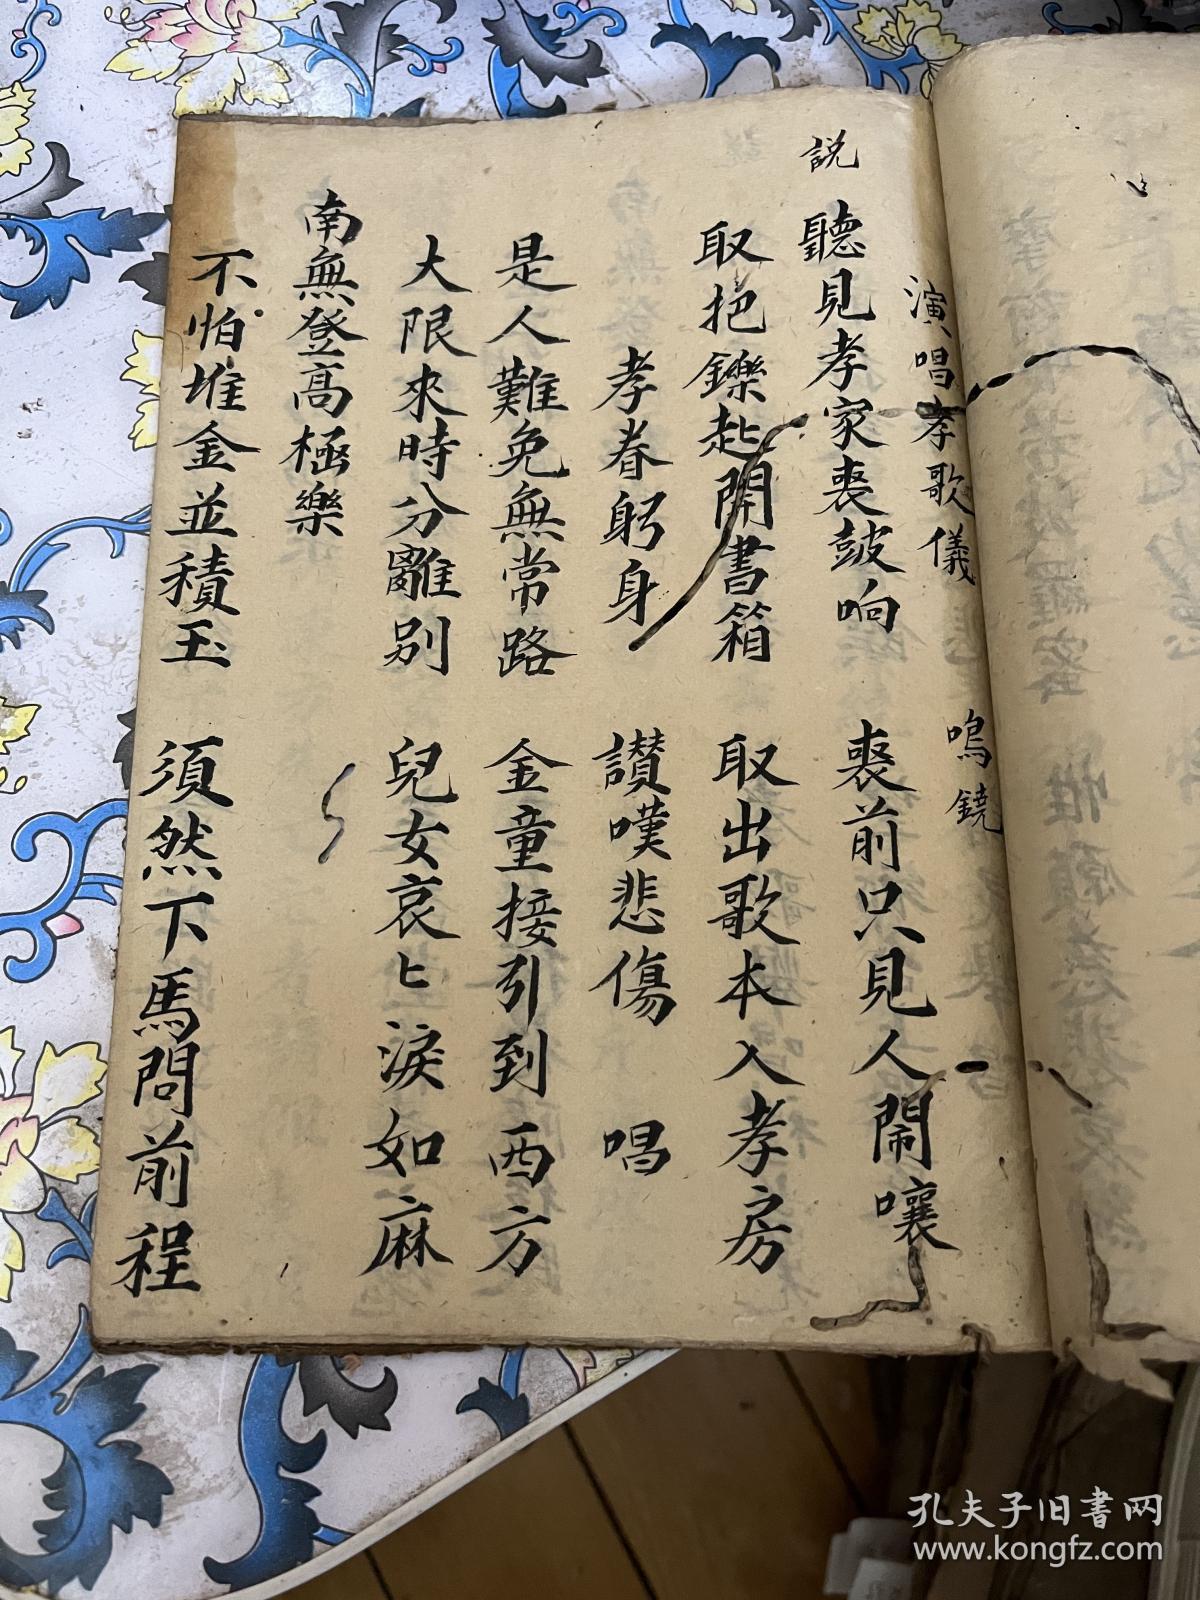 演唱孝歌儀 鳴鐃
説 聽見孝家喪鼓响 喪前只見人鬧嚷
取把鑠匙開書箱 取出歌本入孝房
孝眷躬身 讃嘆悲傷 唱
是人難免無常路 金童接引到西方
大限來時分離别 兒女哀匕淚如麻
南無登高極樂
不怕堆金並積玉 須然下馬問前程
孔夫子旧书网
www.kongfz.com